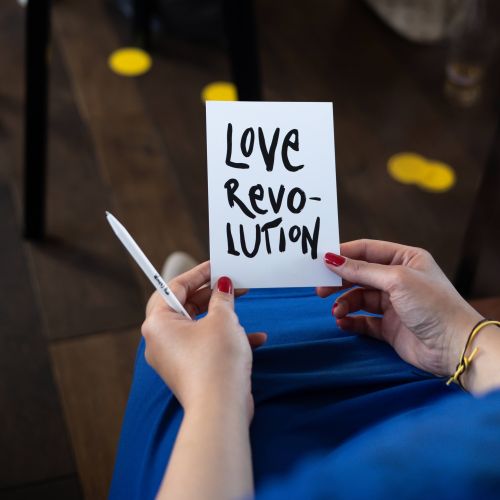 LOVE
REVO-
LUTION